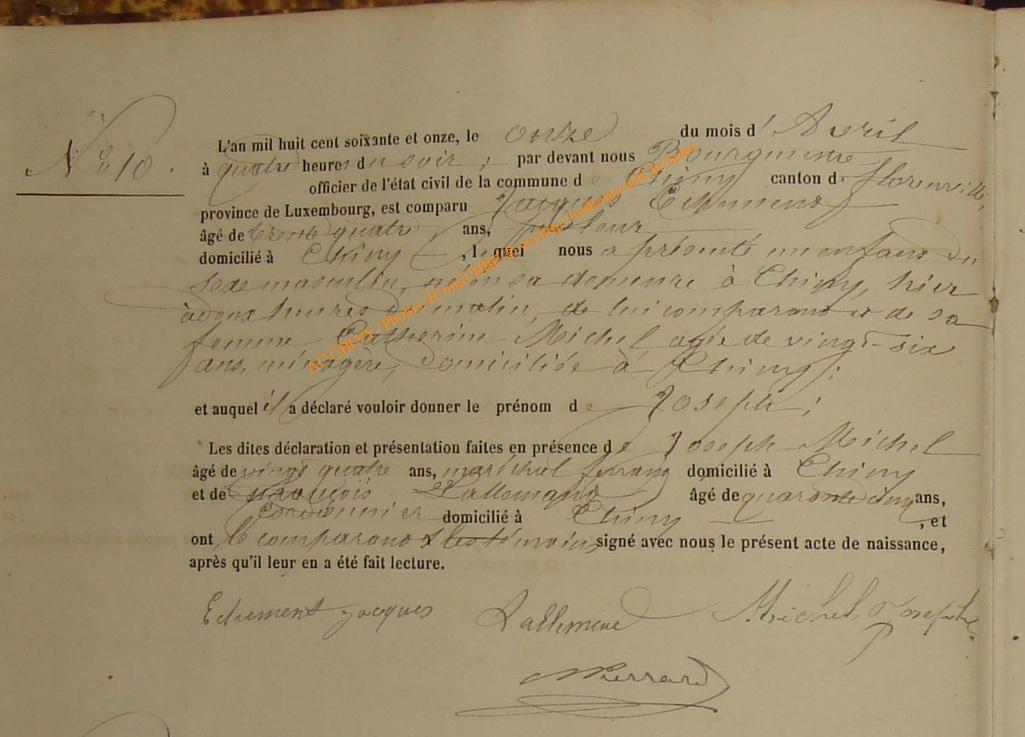 N° 10.
L'an mil huit cent soixante et onze, le onze du mois d' Avril
à quatre heures du soir, par devant nous Bourgmestre
officier de l'état civil de la commune de Chiny canton de florenville,
province de Luxembourg, est comparu Jacques
âgé de trente quatre ans,
domicilié à Chiny, lequel nous a présenté un enfant du
sexe masculin, né en sa demeure à Chiny, hier
à deux heures du matin, de lui comparant et de sa
femme Catherine Michel, agée de vingt-six
ans, ménagère, domiciliée à Chiny;
et auquel il a déclaré vouloir donner le prénom de Joseph;
Les dites déclaration et présentation faites en présence de Joseph Michel
âgé de vingt quatre ans, maréchal ferrant domicilié à Chiny
et de François Lallemand âgé de quarante cinq ans,
Cordonnier domicilié à Chiny, et
ont, le comparant & les témoins signé avec nous le présent acte de naissance,
après qu'il leur en a été fait lecture.
Jacques Lallemend Michel Joseph
Pierrard